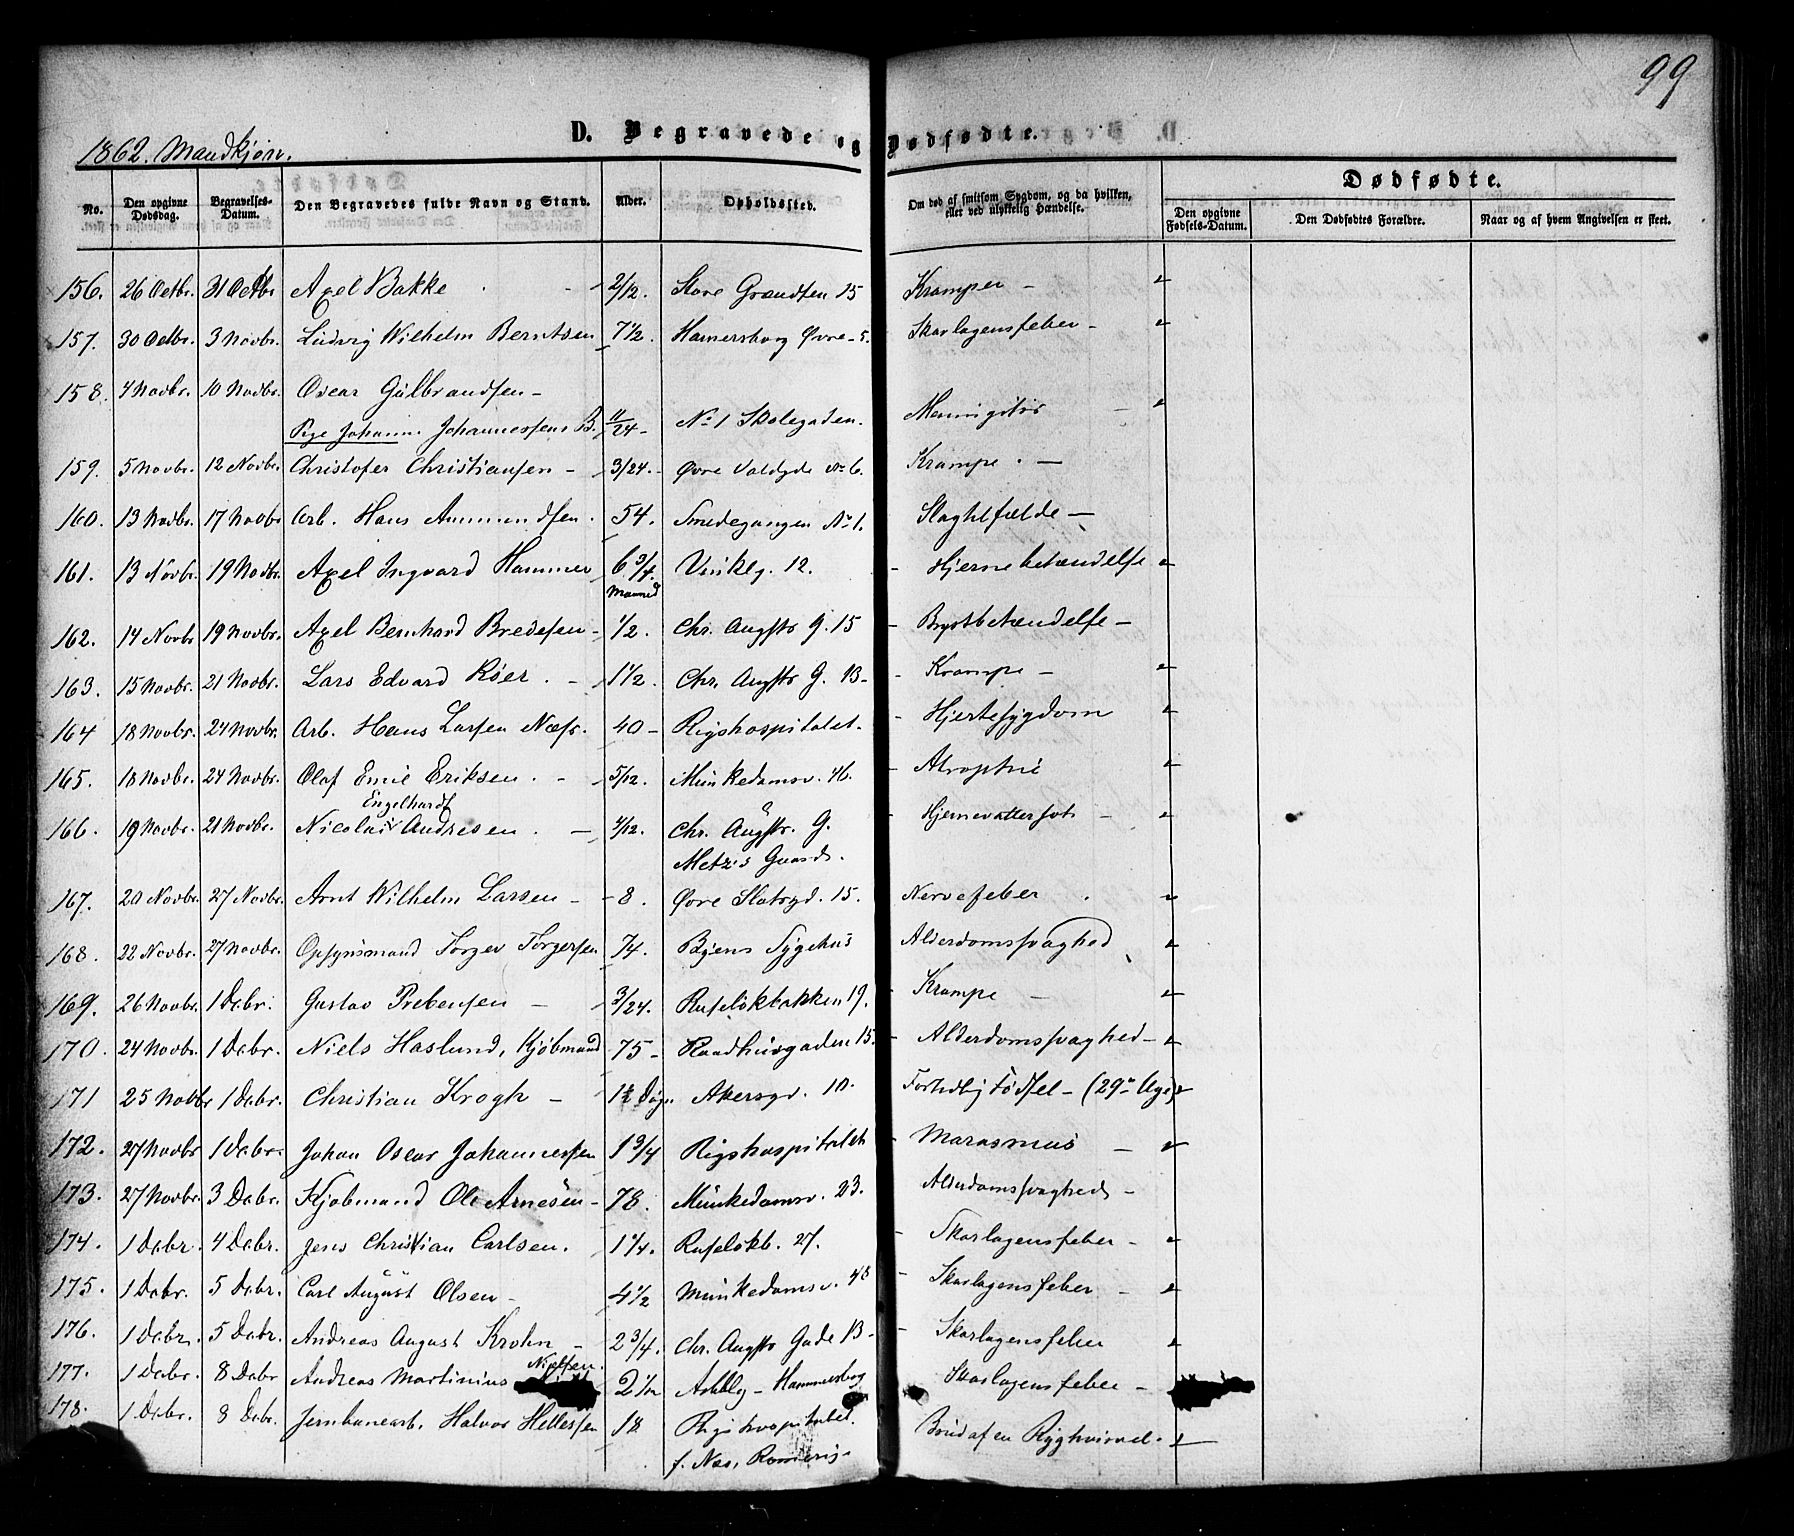 99
D. Begravede og Dødfødte.
1862. Mandkjøn.
No. Den opgivne Dødsdag. Begravelses-Datum. Den Begravedes fulde Navn og Stand. Alder. Opholdssted. Om død af smitsom Sygdom, og da hvilken, eller ved ulykkelig Hændelse. Dødfødte.
Den opgivne Fødsels-Datum. Den Dødfødtes Forældre. Naar og af hvem Angivelsen er skeet.
156. 26 Octbr. 31 Octbr Axel Bakke - 2/12. Store Grændsen 15 Kramper -
157. 30 Octbr. 3 Novbr. Ludvig Wilhelm Berntsen 7 1/2. Hamersborg Øvre - 5. Skarlagensfeber -
158. 4 Novbr. 10 Novbr. Oscar Gulbrandsen -
Pige Johanne Johannessens B. 11/24 - No 1 Skolegaden. Meningitis -
159. 5 Novbr. 12 Novbr. Christofer Christiansen - 3/24. - Øvre Voldgde No 6. Krampe. -
160. 13 Novbr. 17 Novbr Arb. Hans Ammundsen. 54. Smedegangen No 1. Slagtilfælde -
161. 13 Novbr. 19 Novbr. Axel Ingvard Hammer 6 3/4. Vinklg. 12. - Hjernebetændelse
Maaned
162. 14 Novbr 19 Novbr. Axel Bernhard Bredesen - 1/2. Chr. Augsts G. 15 - Brystbetændelse -
163. 15 Novbr. 21 Novbr. Lars Edvard Röer. - 1 1/2. Chr. Augsts G. 13 - - Krampe -
164 18 Novbr. 24 Novbr. Arb. Hans Larsen Næss. 40 - Rigshospitalet. - Hjertesygdom
165. 18 Novbr. 24 Novbr. Olaf Emil Eriksen. - 5/12. Munkedamsv. 46. - Atrophie
Engelhardt
166. 19 Novbr. 21 Novbr. Nicolai Andresen. - 4/12. Chr. Augsts. G. - Hjernevattersot -
Metzis Gaard.
167. 20 Novbr. 27 Novbr. Arnt Wilhelm Larsen - 8. Øvre Slotsgd. 15. Nervefeber
168. 22 Novbr. 27 Novbr. Opsynsmand Torger Torgersen 74. Byens Sygehus Alderdomssvaghed
169. 26 Novbr. 1 Dcbr. Gustav Prebensen - 3/24. Ruseløkbakken 19. - Krampe -
170. 24 Novbr. 1 Dcbr. Niels Haslund, Kjöbmand 75 - Raadhusgaden 15. - Alderdomssvaghed -
171 25 Novbr 1 Dcbr. Christian Krogh - 1 1/2 Døgn Akersgd. 10. Fortidlig Fødsel - (29de Uge)
172. 27 Novbr 1 Dcbr. Johan Oscar Johannessen 1 3/4 Rigshospitalet - Marasmus -
173. 27 Novbr. 3 Dcbr. Kjøbmand Ole Arnesen - 78. Munkedamsv. 23. Alderdomssvaghed -
174. 1 Dcbr. 4 Dcbr. Jens Christian Carlsen. 1 1/4. Ruseløkb. 27. - Skarlagensfeber -
175. 1 Dcbr. 5 Dcbr. Carl August Olsen - 4 1/2 Munkedamsv. 48 - Skarlagensfeber -
176. 1 Dcbr. 5 Dcbr. Andreas August Krohn - 2 3/4. Chr. Augsts Gade 13 - - Skarlagensfeber
Nielsen.
177. 1 Dcbr. 8 Dcbr Andreas Martinius 2 1/12 Ashby - Hammersborg Skarlagensfeber -
178. 1 Dcbr. 8 Dcbr. Jernbanearb. Halvor Hellessen 18 Rigshospitalet. Brud af en Ryghvirvel.
f. Næs, Romerig -